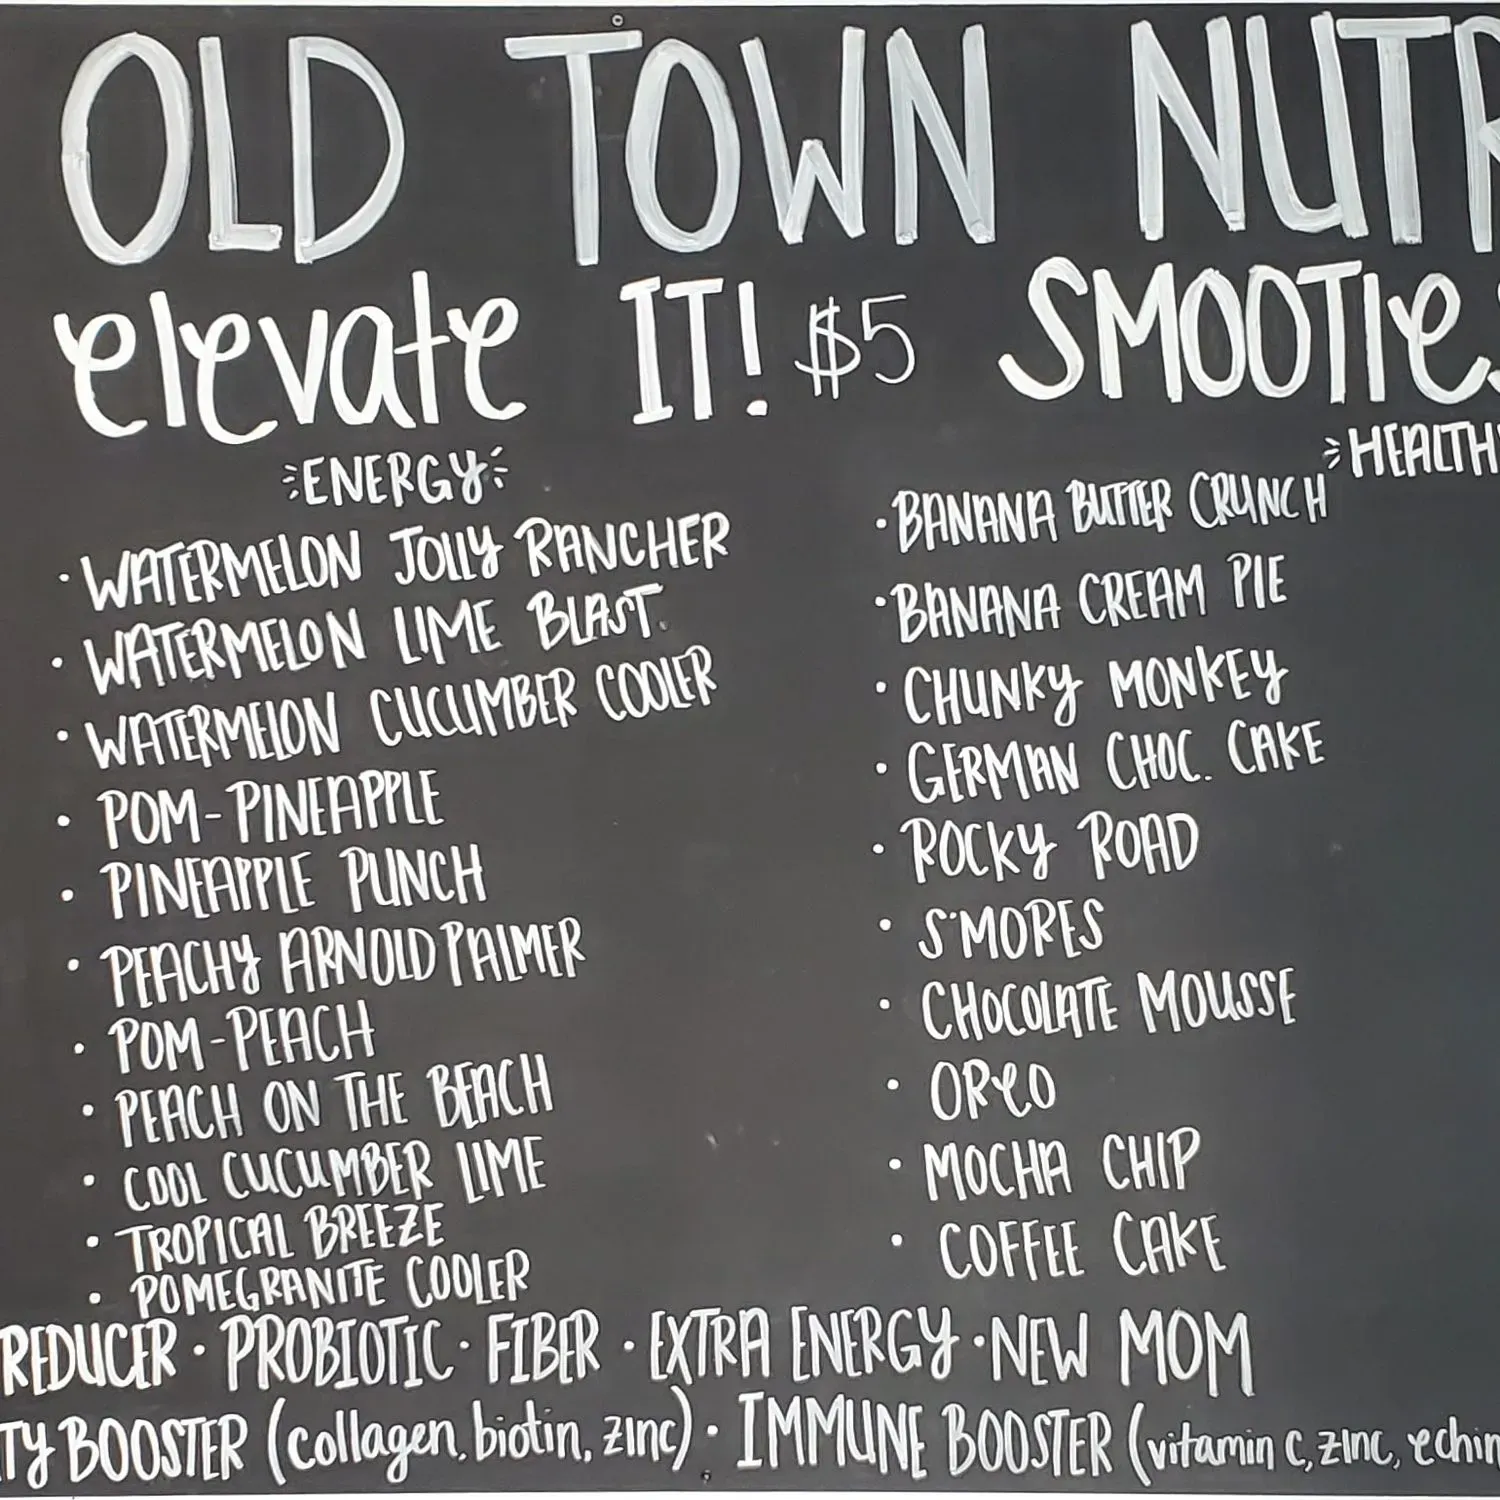 OLD TOWN NUTR
elevate IT! $5
ENERGY
• WATERMELON JOLLY RANCHER
• WATERMELON LIME BLAST
• WATERMELON CUCUMBER COOLER
• POM-PINEAPPLE
• PINEAPPLE PUNCH
• PEACHY ARNOLD PALMER
• POM-PEACH
• PEACH ON THE BEACH
• COOL CUCUMBER LIME
• TROPICAL BREEZE
• POMEGRANITE COOLER
SMOOTIE
HEALTH
• BANANA BUTTER CRUNCH
• BANANA CREAM PIE
• CHUNKY MONKEY
• GERMAN CHOC. CAKE
• ROCKY ROAD
• S'MORES
• CHOCOLATE MOUSSE
• OREO
• MOCHA CHIP
• COFFEE CAKE
REDUCER • PROBIOTIC • FIBER • EXTRA ENERGY • NEW MOM
TY BOOSTER (collagen, biotin, zinc) • IMMUNE BOOSTER (vitamin c, zinc, echin